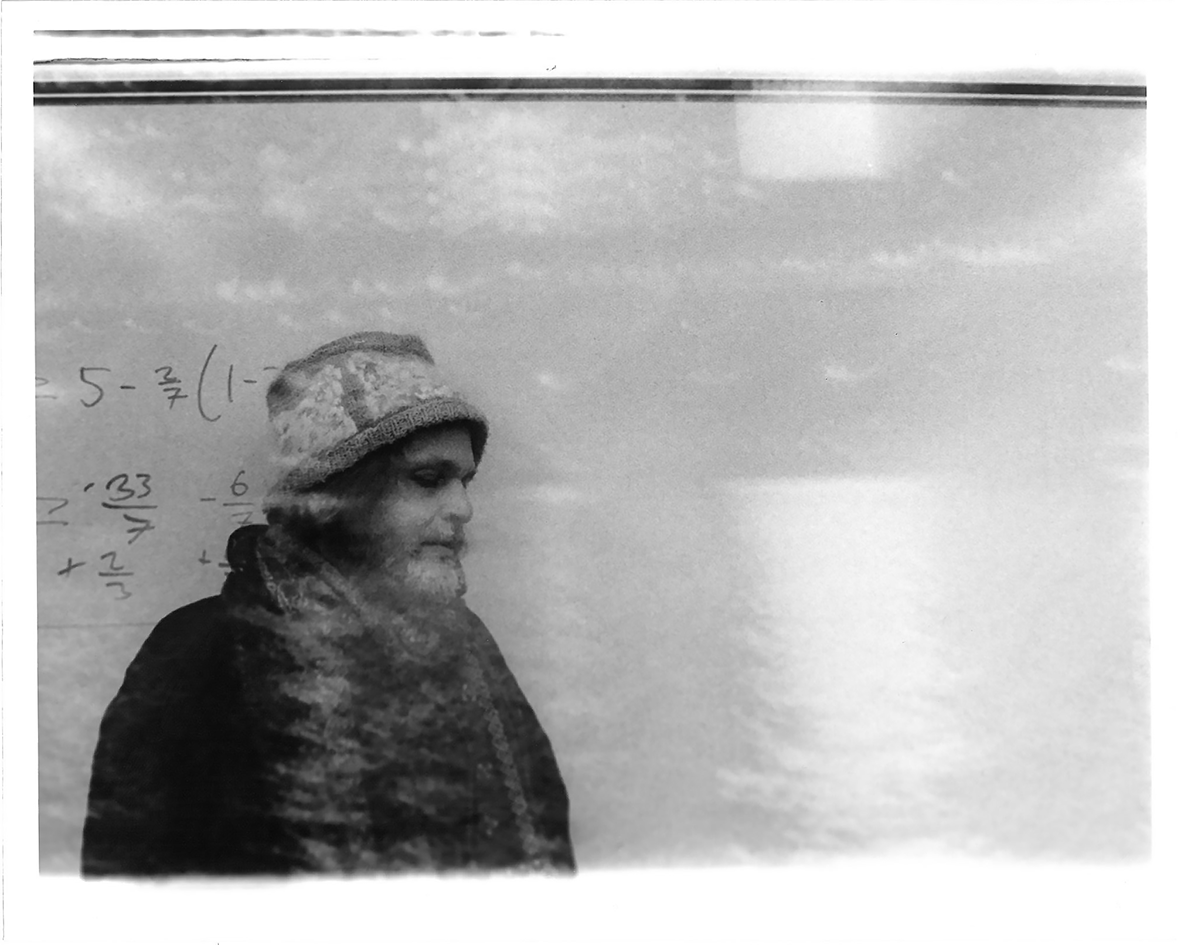 = 5 - 3/7 (1 -
= 33/7 - 6/7
+ 2/3 +